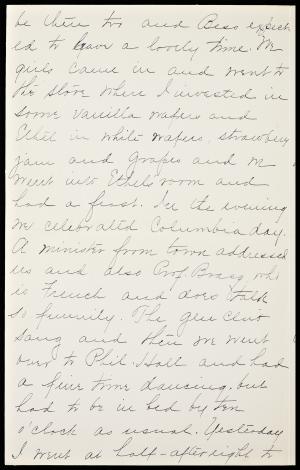 be there too and Bess expect
ed to have a lovely time. We
girls came in and went to
the store where I invested in
some vanilla wafers and
Ethel in white wafers, strawberry
jam and grapes and we
went into Ethels room and
had a feast. In the evening
we celebrated Columbia day.
A minister from town addressed
us and also Prof. who
is French and does talk
so funnily. The glee club
sang and then we went
over to Phil. Hall and had
a fine time dancing, but
had to be in bed by ten
o'clock as usual. Yesterday
I went at half-after eight to